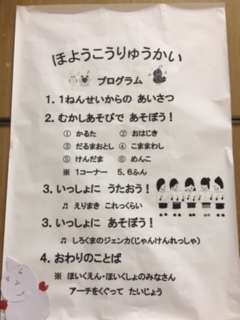 ほようこうりゅうかい
プログラム
1. 1ねんせいからの あいさつ
2. むかしあそびで あそぼう!
① かるた ② おはじき
③ だるまおとし ④ こままわし
⑤ けんだま ⑥ めんこ
※ 1コーナー 5.6ふん
3. いっしょに うたおう!
♫ えりまき これっくらい
3. いっしょに あそぼう!
♫ しろくまのジェンカ(じゃんけんれっしゃ)
4. おわりのことば
※ ほいくえん・ほいくしょのみなさん
アーチをくぐって たいじょう